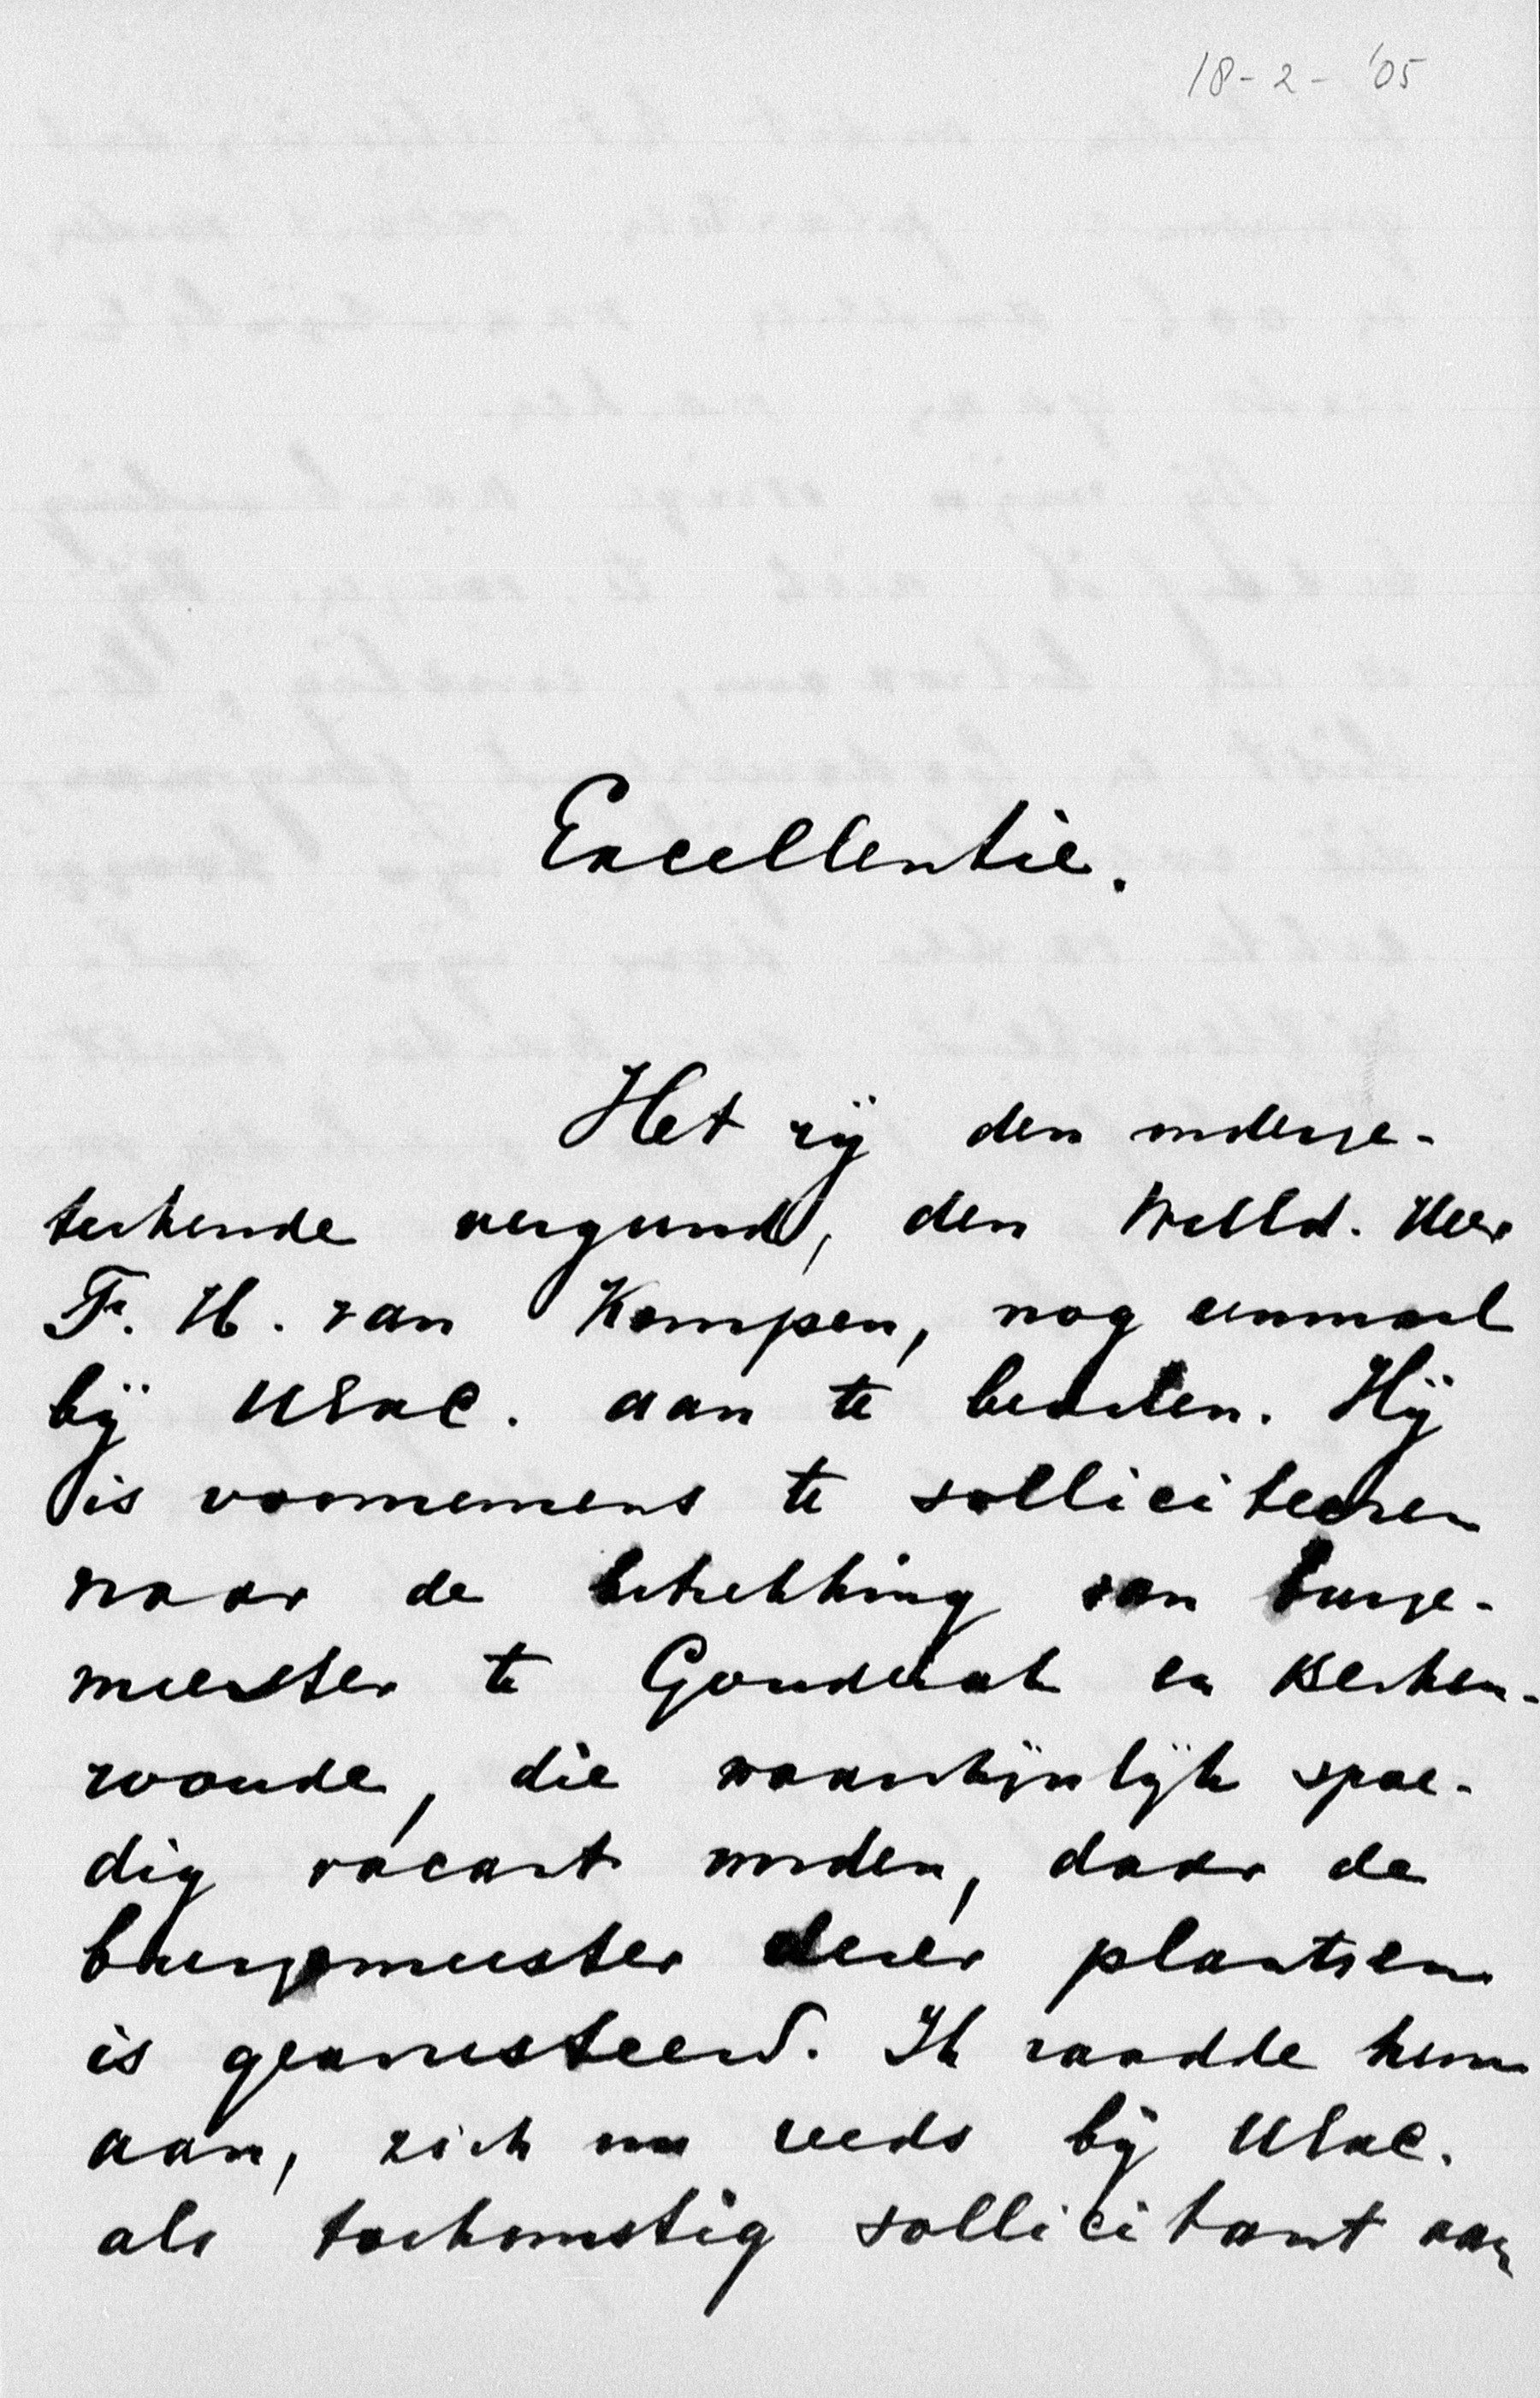 18-2-'05
Excellentie.
Het zij den onderge-
teekende vergund, den WelEd. Heer
F. H. van Kempen, nog eenmaal
bij UExc. aan te bevelen. Hij
is voornemens te solliciteeren
naar de betrekking van burge-
meester te Gouderak en Berken-
woude, die waarschijnlijk spoe-
dig vacant worden, daar de
burgemeester dezer plaatsen
is gearresteerd. Ik raadde hem
aan, zich nu reeds bij UExc.
als toekomstig sollicitant aan